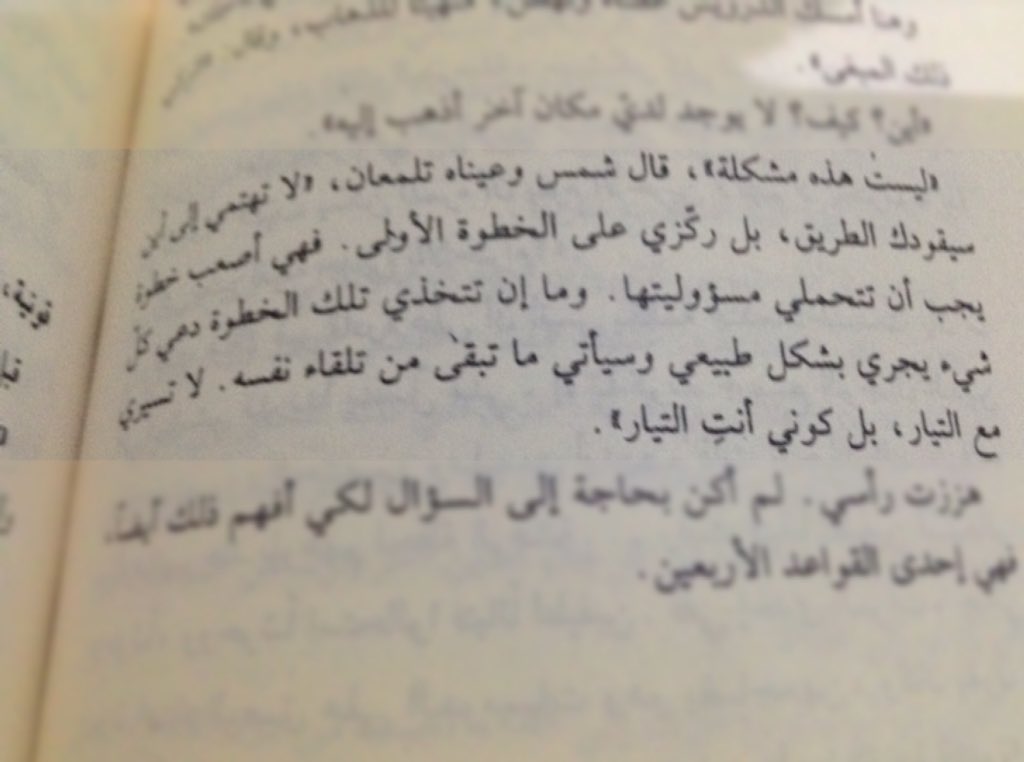 وهنا أمسك الدرويش
ذلك المبغى».
«لِمَ؟ كيف؟ لا يوجد لديّ مكان آخر أذهب إليه».
«ليست هذه مشكلة»، قال شمس وعيناه تلمعان، «لا تهتمي إلى أين
سيقودك الطريق، بل ركّزي على الخطوة الأولى. فهي أصعب خطوة
يجب أن تتحملي مسؤوليتها. وما إن تتخذي تلك الخطوة دعي كلّ
شيء يجري بشكل طبيعي وسيأتي ما تبقىٰ من تلقاء نفسه. لا تسيري
مع التيار، بل كوني أنتِ التيار».
هززت رأسي. لم أكن بحاجة إلى السؤال لكي أفهم ذلك أيضاً،
فهي إحدى القواعد الأربعين.